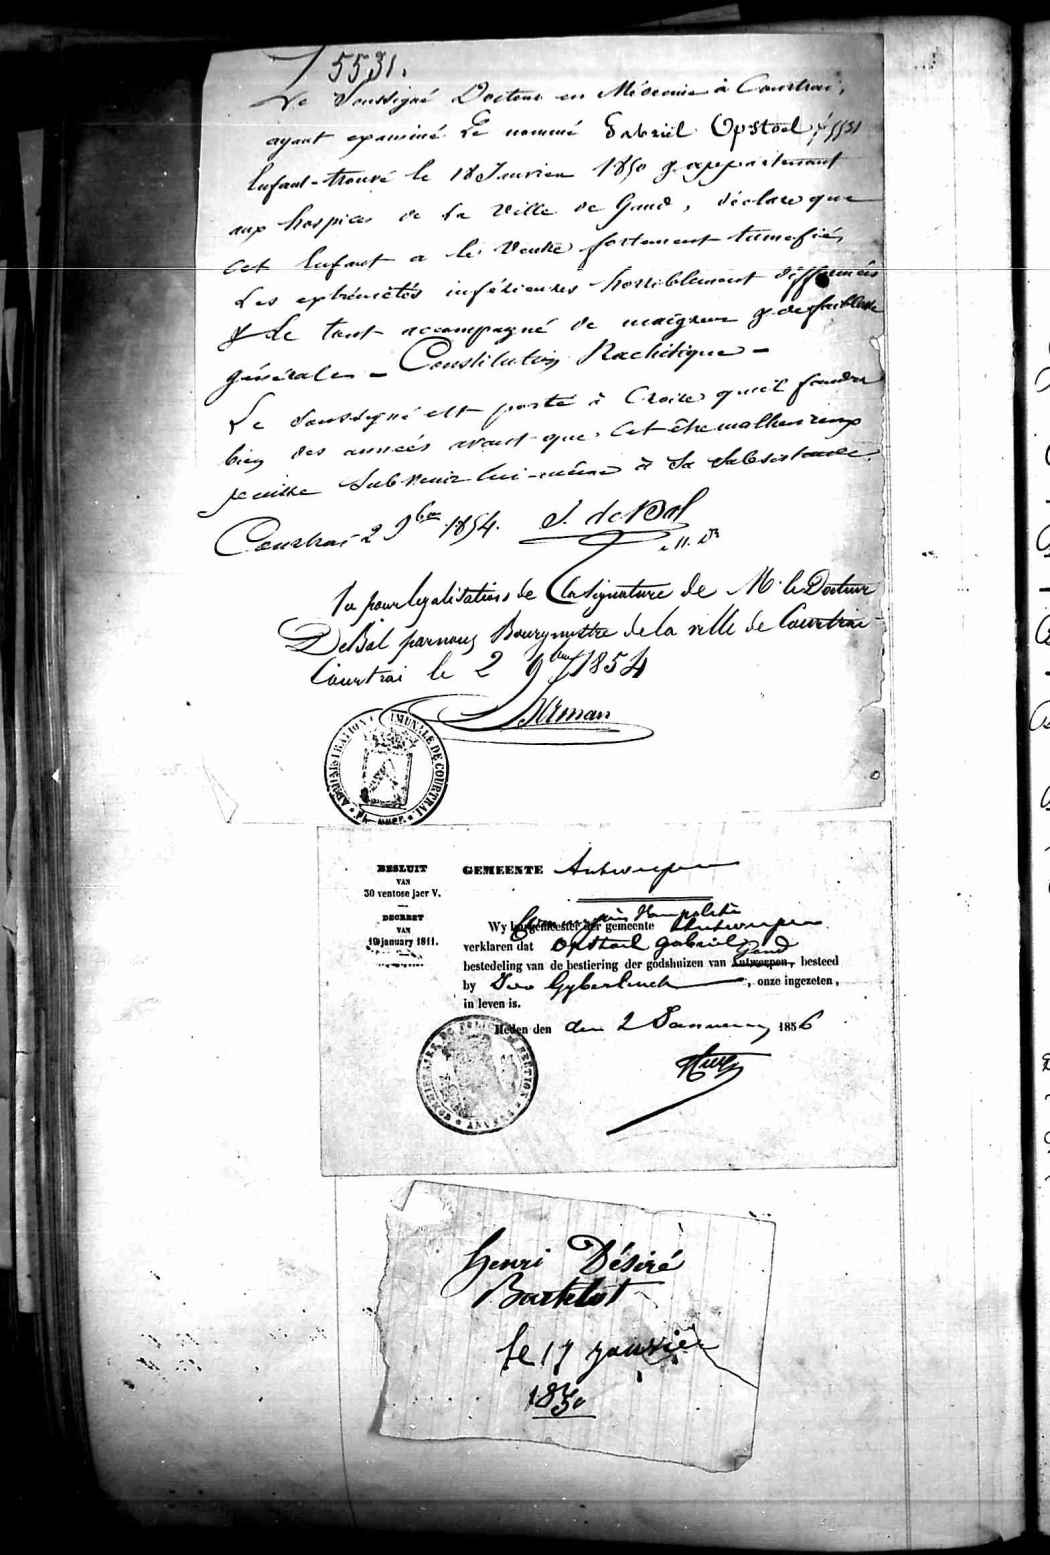 5531.
Le Soussigné Docteur en Médecine à Courtrai,
ayant examiné Le nommé Gabriël Opstoel, 5531
Enfant-trouvé le 18 Janvier 1850 & appartenant
aux hospices de la Ville de Gand, déclare que
cet Enfant a le Ventre fortement tuméfié,
Les extrémités inférieures horriblement difformées
& Le tout accompagné de maigreur & de faiblesse
générale – Constitution Rachitique –
Le Soussigné est porté à Croire qu'il faudra
bien des années avant que cet être malheureux
puisse Subvenir lui-même à Sa Subsistance.
Courtrai 2 9bre 1854. J. de Bal
Vu pour légalisation de la signature de Mr. le Docteur
DeBal par nous Bourgmestre de la ville de Courtrai
Courtrai le 2 9bre 1854
ADMINISTRATION COMMUNALE DE COURTRAI
BESLUIT
VAN
30 ventose jaer V.
DECREET
VAN
19 january 1811.
GEMEENTE Antwerpen
Wy burgemeester der gemeente Antwerpen
verklaren dat Opstael Gabriel
bestedeling van de bestiering der godshuizen van Antwerpen, Gand besteed
by Ivo Gyberlinck, onze ingezeten,
in leven is.
Heden den den 2 January 1856
Henri Désiré
Bartelot
le 17 janvier
1850